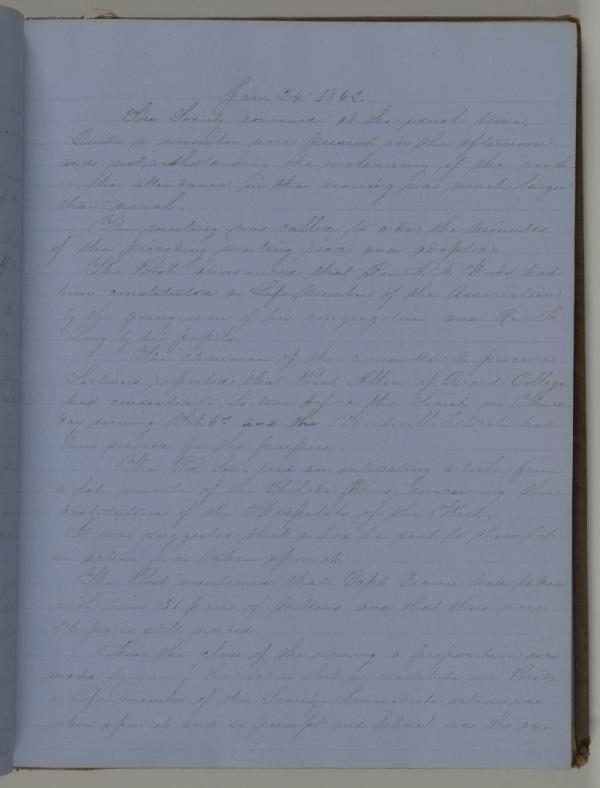 Jan. 24 1862.
The Society convened at the usual time.
Quite a number were present in the afternoon
and notwithstanding the inclemency of the weath-
er, the attendance in the evening was much larger
than usual.
The meeting was called to order the minutes
of the preceding meeting read and adopted.
The Prest. announced that Rev. Woods had
been constituted a Life Member of the Association
by the young men of his congregation and Rev.
Long by his pupils.
The chairman of the committee to procure
Lecturers reported that Prest. Allen of Girard College
had consented to Lecture before the Society on Thurs-
day evening Feb. 6th and the Church had
been secured for the purpose.
The Sec. read an interesting article from
a late number of the Philada Press, concerning the
destitutions of the Hospitals of the West.
It was suggested that a box be sent to them but
no action was taken upon it.
The Prest. mentioned that Capt. had taken
with him 31 pairs of Mittens and that there were
26 pairs still needed.
Near the close of the evening a proposition was
made by one of the ladies that we constitute our Prest.
a Life member of the Society. Immediate action was
taken upon it and so prompt and liberal was the re-